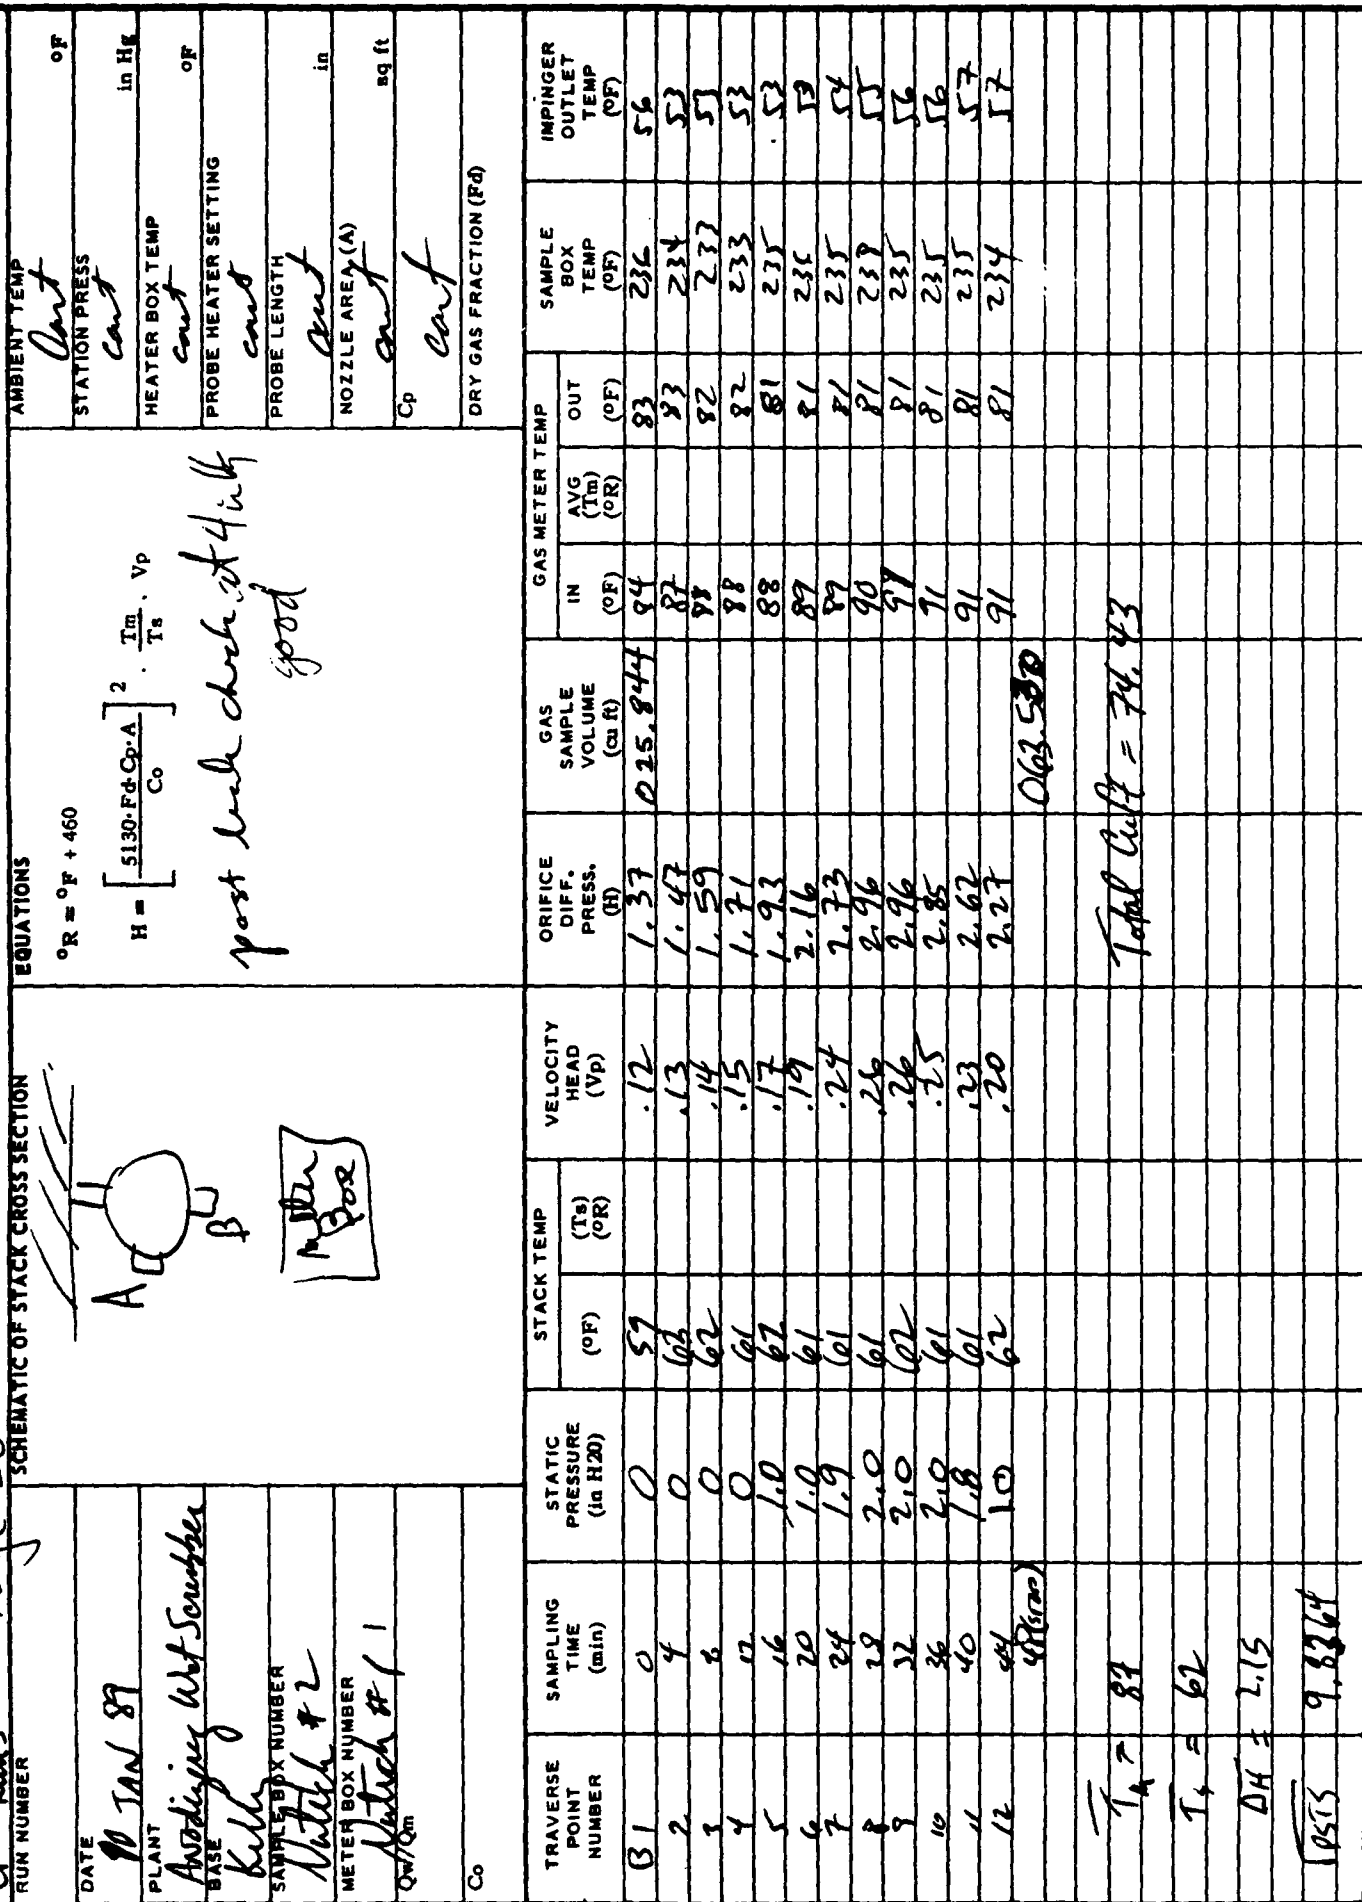 RUN NUMBER
DATE
JAN 89
PLANT
Anodizing Wet Scrubber
BASE
Kelly
SAMPLE BOX NUMBER
Nutech # 2
METER BOX NUMBER
Nutech # 1
Qw/Qm
Co
SCHEMATIC OF STACK CROSS SECTION
A
B
Meter
Box
EQUATIONS
°R = °F + 460
H = [ 5130·Fd·Cp·A / Co ] 2 · Tm / Ts · Vp
post leak check at 4 in Hg
good
AMBIENT TEMP °F
Cont
STATION PRESS in Hg
Cont
HEATER BOX TEMP °F
cont
PROBE HEATER SETTING
cont
PROBE LENGTH in
cont
NOZZLE AREA (A) sq ft
cont
Cp
cont
DRY GAS FRACTION (Fd)
TRAVERSE POINT NUMBER
SAMPLING TIME (min)
STATIC PRESSURE (in H20)
STACK TEMP
(°F)
(Ts) (°R)
VELOCITY HEAD (Vp)
ORIFICE DIFF. PRESS. (H)
GAS SAMPLE VOLUME (cu ft)
GAS METER TEMP
IN (°F)
AVG (Tm) (°R)
OUT (°F)
SAMPLE BOX TEMP (°F)
IMPINGER OUTLET TEMP (°F)
B 1 0 0 59 .12 1.37 025.844 84 83 236 56
2 4 0 62 .13 1.47 87 83 234 53
3 8 0 62 .14 1.59 88 82 233 53
4 12 0 61 .15 1.71 88 82 233 53
5 16 1.0 62 .17 1.93 88 81 235 53
6 20 1.0 61 .19 2.16 89 81 236 53
7 24 1.9 61 .24 2.73 89 81 235 54
8 28 2.0 61 .26 2.96 90 81 238 55
9 32 2.0 62 .26 2.96 91 81 235 56
10 36 2.0 61 .25 2.85 91 81 235 56
11 40 1.8 61 .23 2.62 91 81 235 57
12 44 1.0 62 .20 2.27 91 81 234 57
48 (stop) 063.530
Tm = 87
Total Cuft = 74.43
Ts = 62
ΔH = 2.15